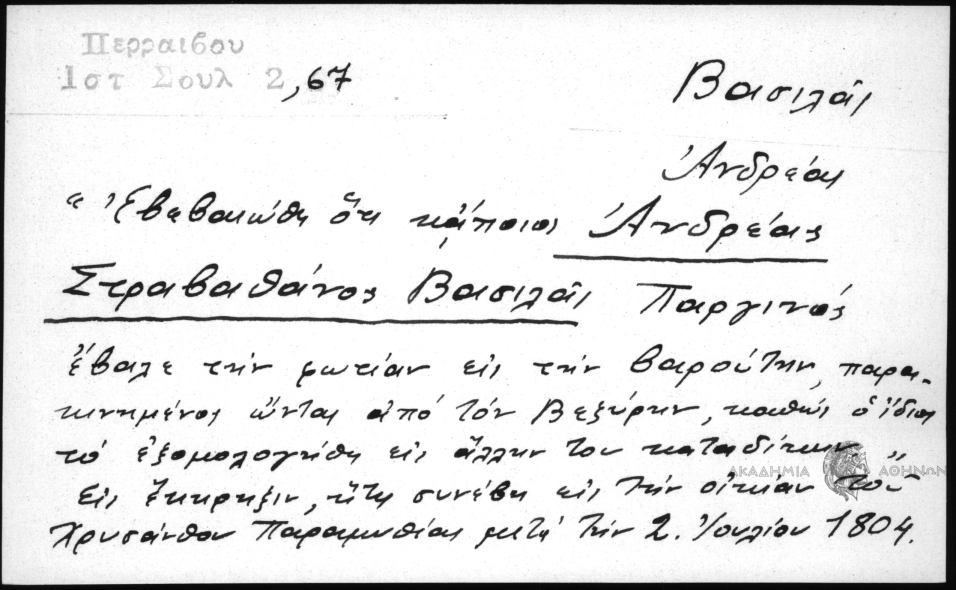 Περραιβου
Ιστ Σουλ 2, 67
Βασιλᾶς
Ἀνδρέας
"Ἐβεβαιώθη ὅτι κᾄποιος Ἀνδρέας
Στραβαθάνος Βασιλᾶς Παργινός
ἔβαλε τήν φωτίαν εἰς τήν βαρούτην, παρα-
κινημένος ὤντας ἀπό τόν Βεζύρην, καθώς ὁ ἴδιος
τό ἐξομολογήθη εἰς ἄλλην του καταδίκην"
Εἰς ἔκρηξιν, ἥτις συνέβη εἰς τήν οἰκίαν τοῦ
Χρυσάνθου Παραμυθίας μετά τήν 2. Ἰουλίου 1804.
ΑΚΑΔΗΜΙΑ ΑΘΗΝΩΝ